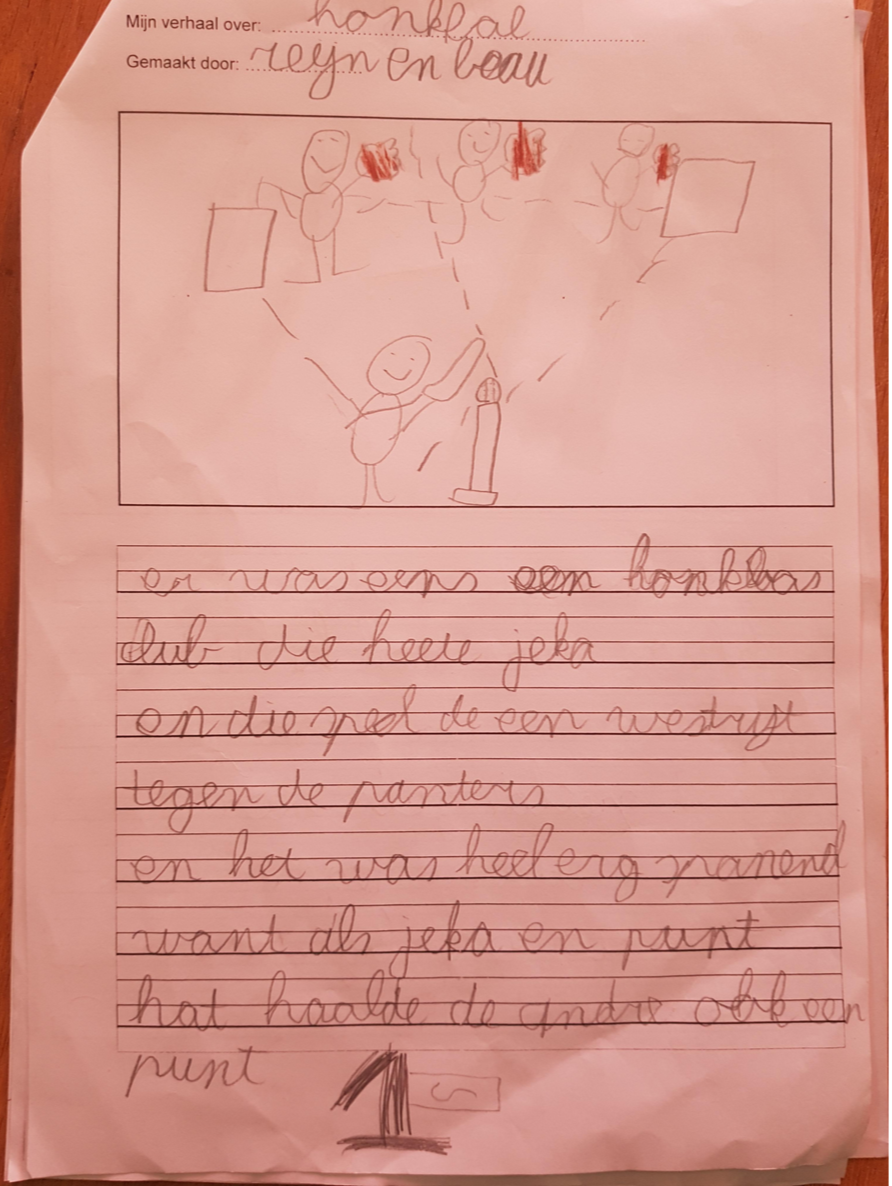 Mijn verhaal over: honkbal
Gemaakt door: reijn en beau
er was eens een honkbas
club die heete jeka
en die speel de een westrijt
tegen de panters
en het was heel erg spanend
want als jeka en punt
hat haalde de andre ook een
punt
1 S